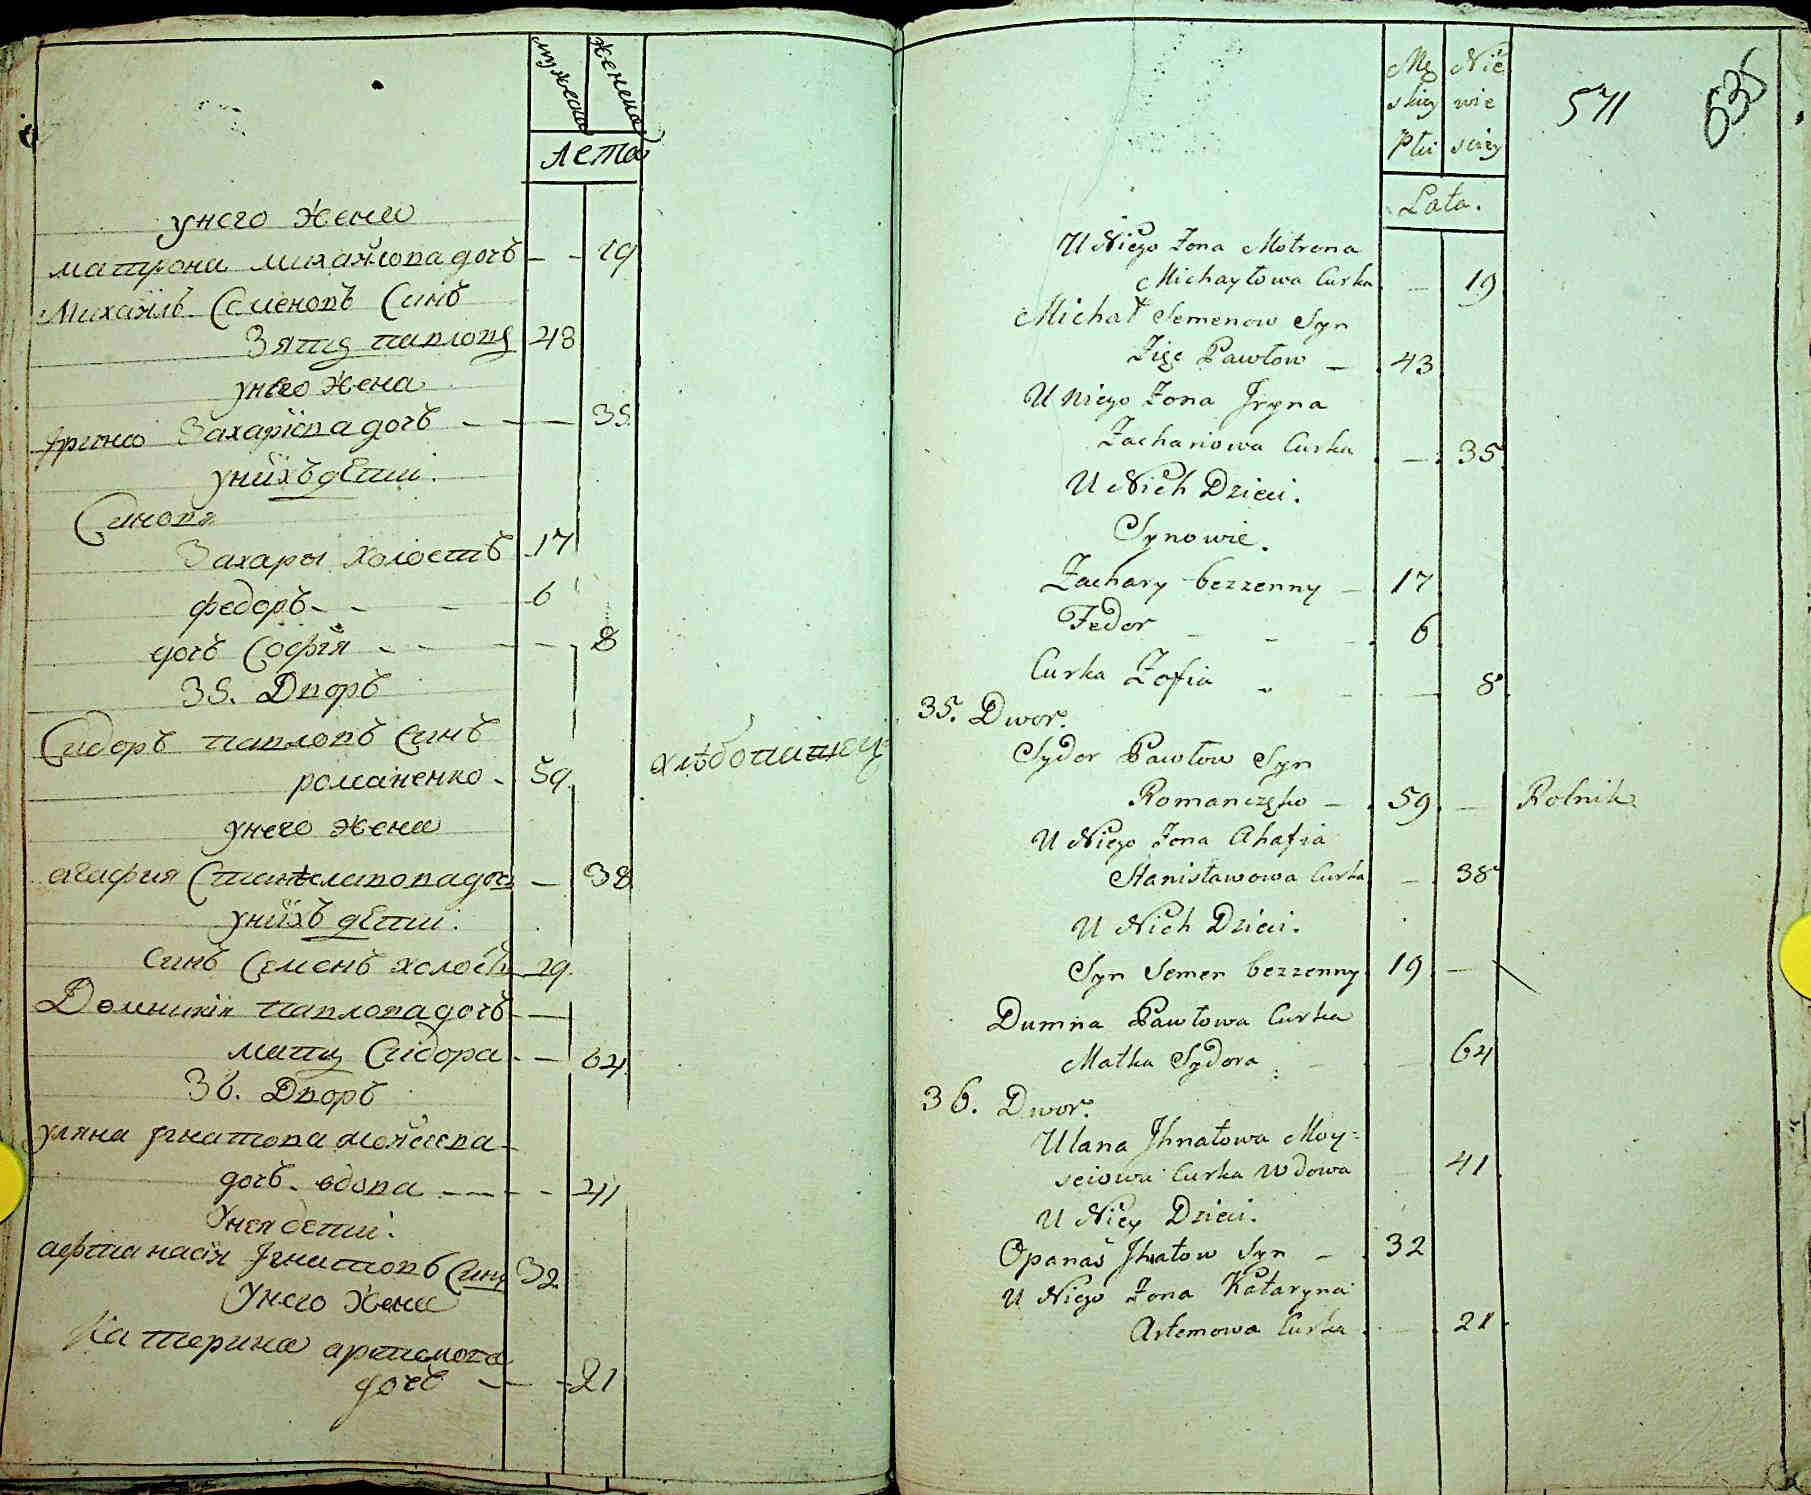 мужеска
женска
лета
у него жена
матрона михайлова дочъ – – 19
Михаилъ Семеновъ Синъ
Зять павловъ 43
у него жена
Ирина Захаріева дочъ – – – 35
у нихъ дѣти
Синовя
Захары холостъ 17
федоръ – – – 6
дочъ Софія – – – 8
35. Дворъ
Сидоръ павловъ Синъ
романенко – 59 хлѣбопашец
у него жена
агафия Станиславова дочъ – 38
у нихъ дѣти
Синъ Семенъ холостъ 19
Домникія павлова дочъ – –
мать Сидора – – 64
36. Дворъ
уляна Игнатова мойсіева –
дочъ вдова – – – – 41
У нея дети
афтанасія Игнатовъ Синъ 32
У него жена
Катерина артемова
дочъ – – – 21
Mę Nie
skiey wie
Płci sciey
571 635
Lata.
U Niego Zona Motrona
Michayłowa Curka – 19
Michał Semenow Syn
Zięc Pawłow – 43
U Niego Zona Jryna
Zachariowa Curka – 35
U Nich Dzieci.
Synowie.
Zachary bezzenny – 17
Fedor – – – 6
Curka Zofia – – – 8
35. Dwor.
Sydor Pawłow Syn
Romanczęko – 59 – Rolnik
U Niego Zona Ahafia
Stanisławowa Curka – 38
U Nich Dzieci.
Syn Semen bezzenny 19 –
Dumna Pawłowa Curka
Matka Sydora – – 64
36. Dwor.
Ulana Jhnatowa Moy=
seiowa Curka Wdowa 41
U Niey Dzieci.
Opanas Jhnatow Syn – 32
U Niego Zona Kataryna
Artemowa Curka – 21